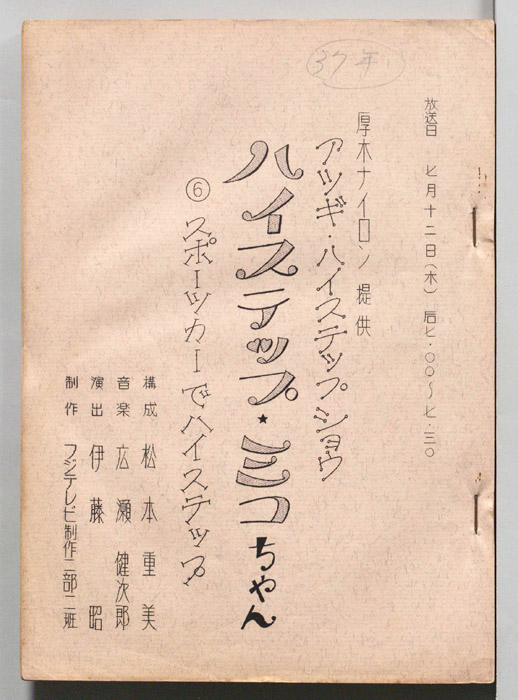 37年
放送日 七月十二日(木)后七・〇〇〜七・三〇
厚木ナイロン 提供
アツギ・ハイステップショウ
ハイステップ★ミコちゃん
⑥ スポーツカーでハイステップ
構成 松本重美
音楽 広瀬健次郎
演出 伊藤昭
制作 フジテレビ制作二部二班